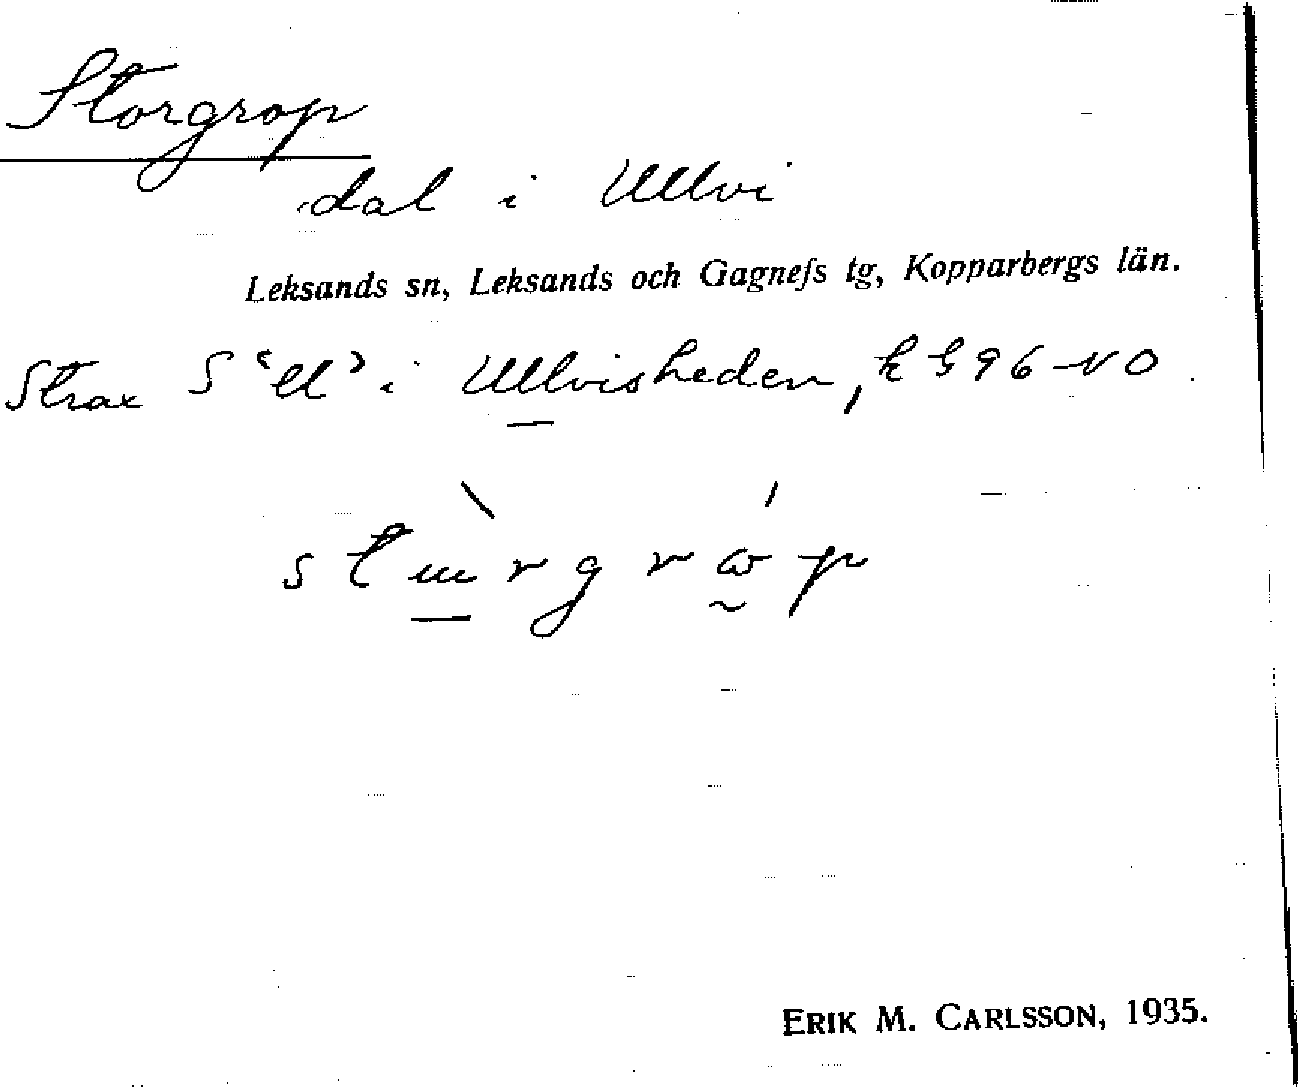 Storgrop
dal i Ullvi
Leksands sn, Leksands och Gagnefs tg, Kopparbergs län.
Strax S 'Ull' i Ullvisheden, k G 96 NO.
ERIK M. CARLSSON, 1935.